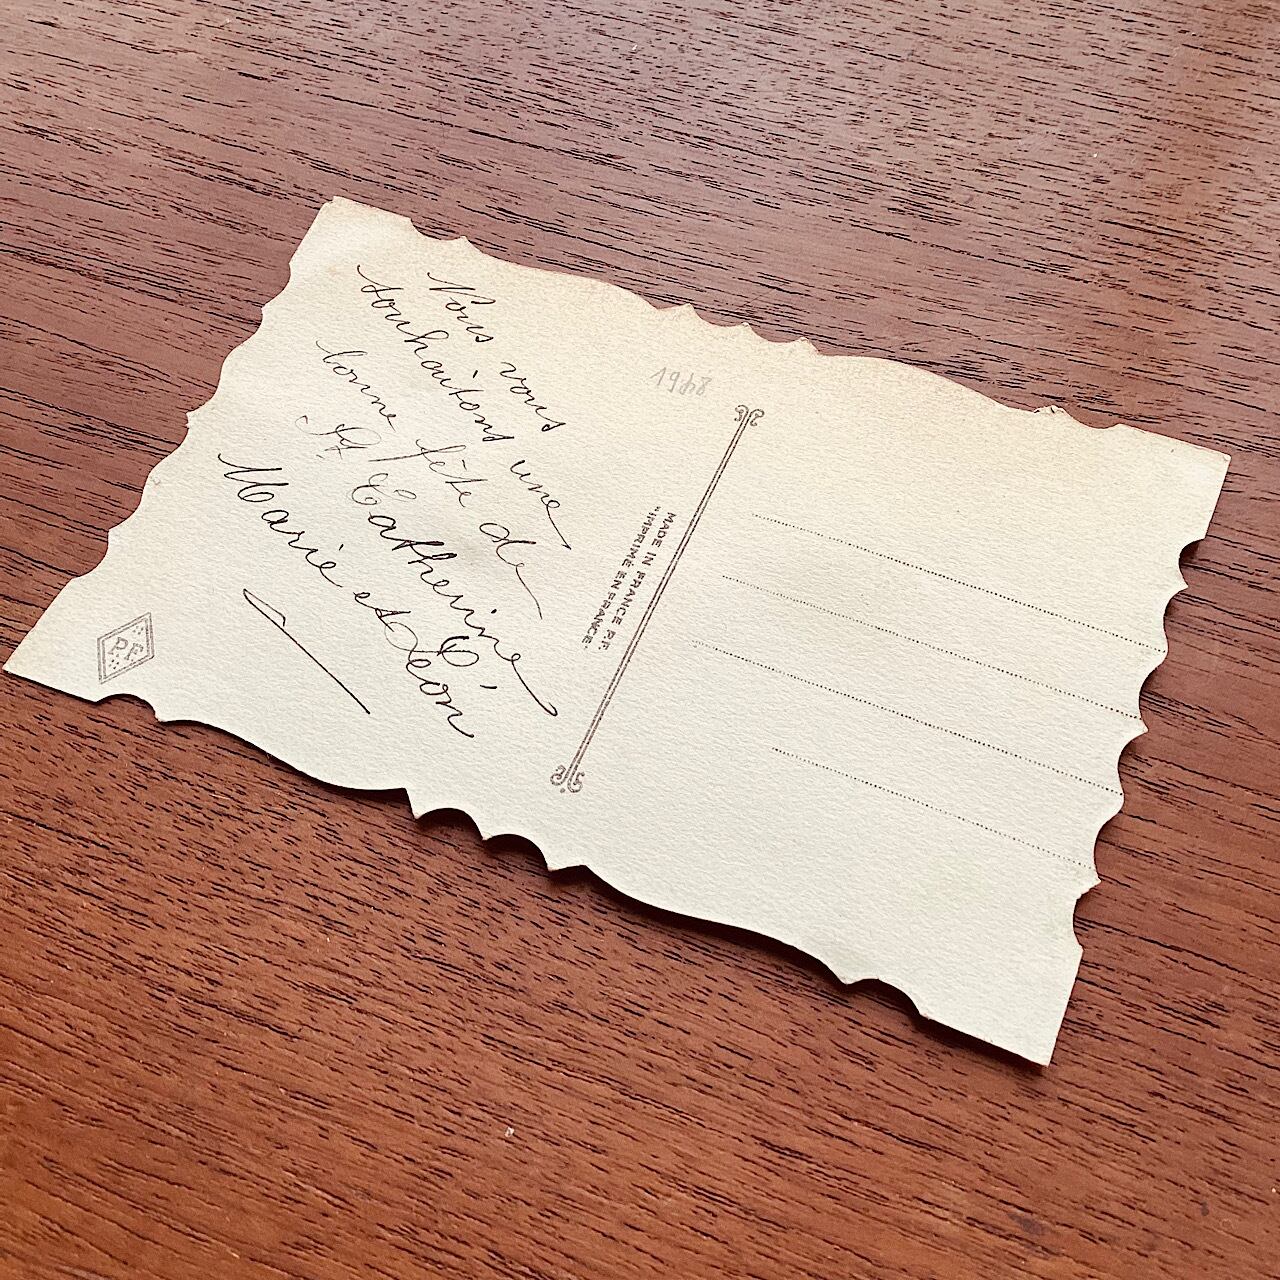 Nous vous
souhaitons une
bonne fête de
St Catherine
Marie et Léon
1948
MADE IN FRANCE P.F.
"IMPRIMÉ EN FRANCE"
P.F